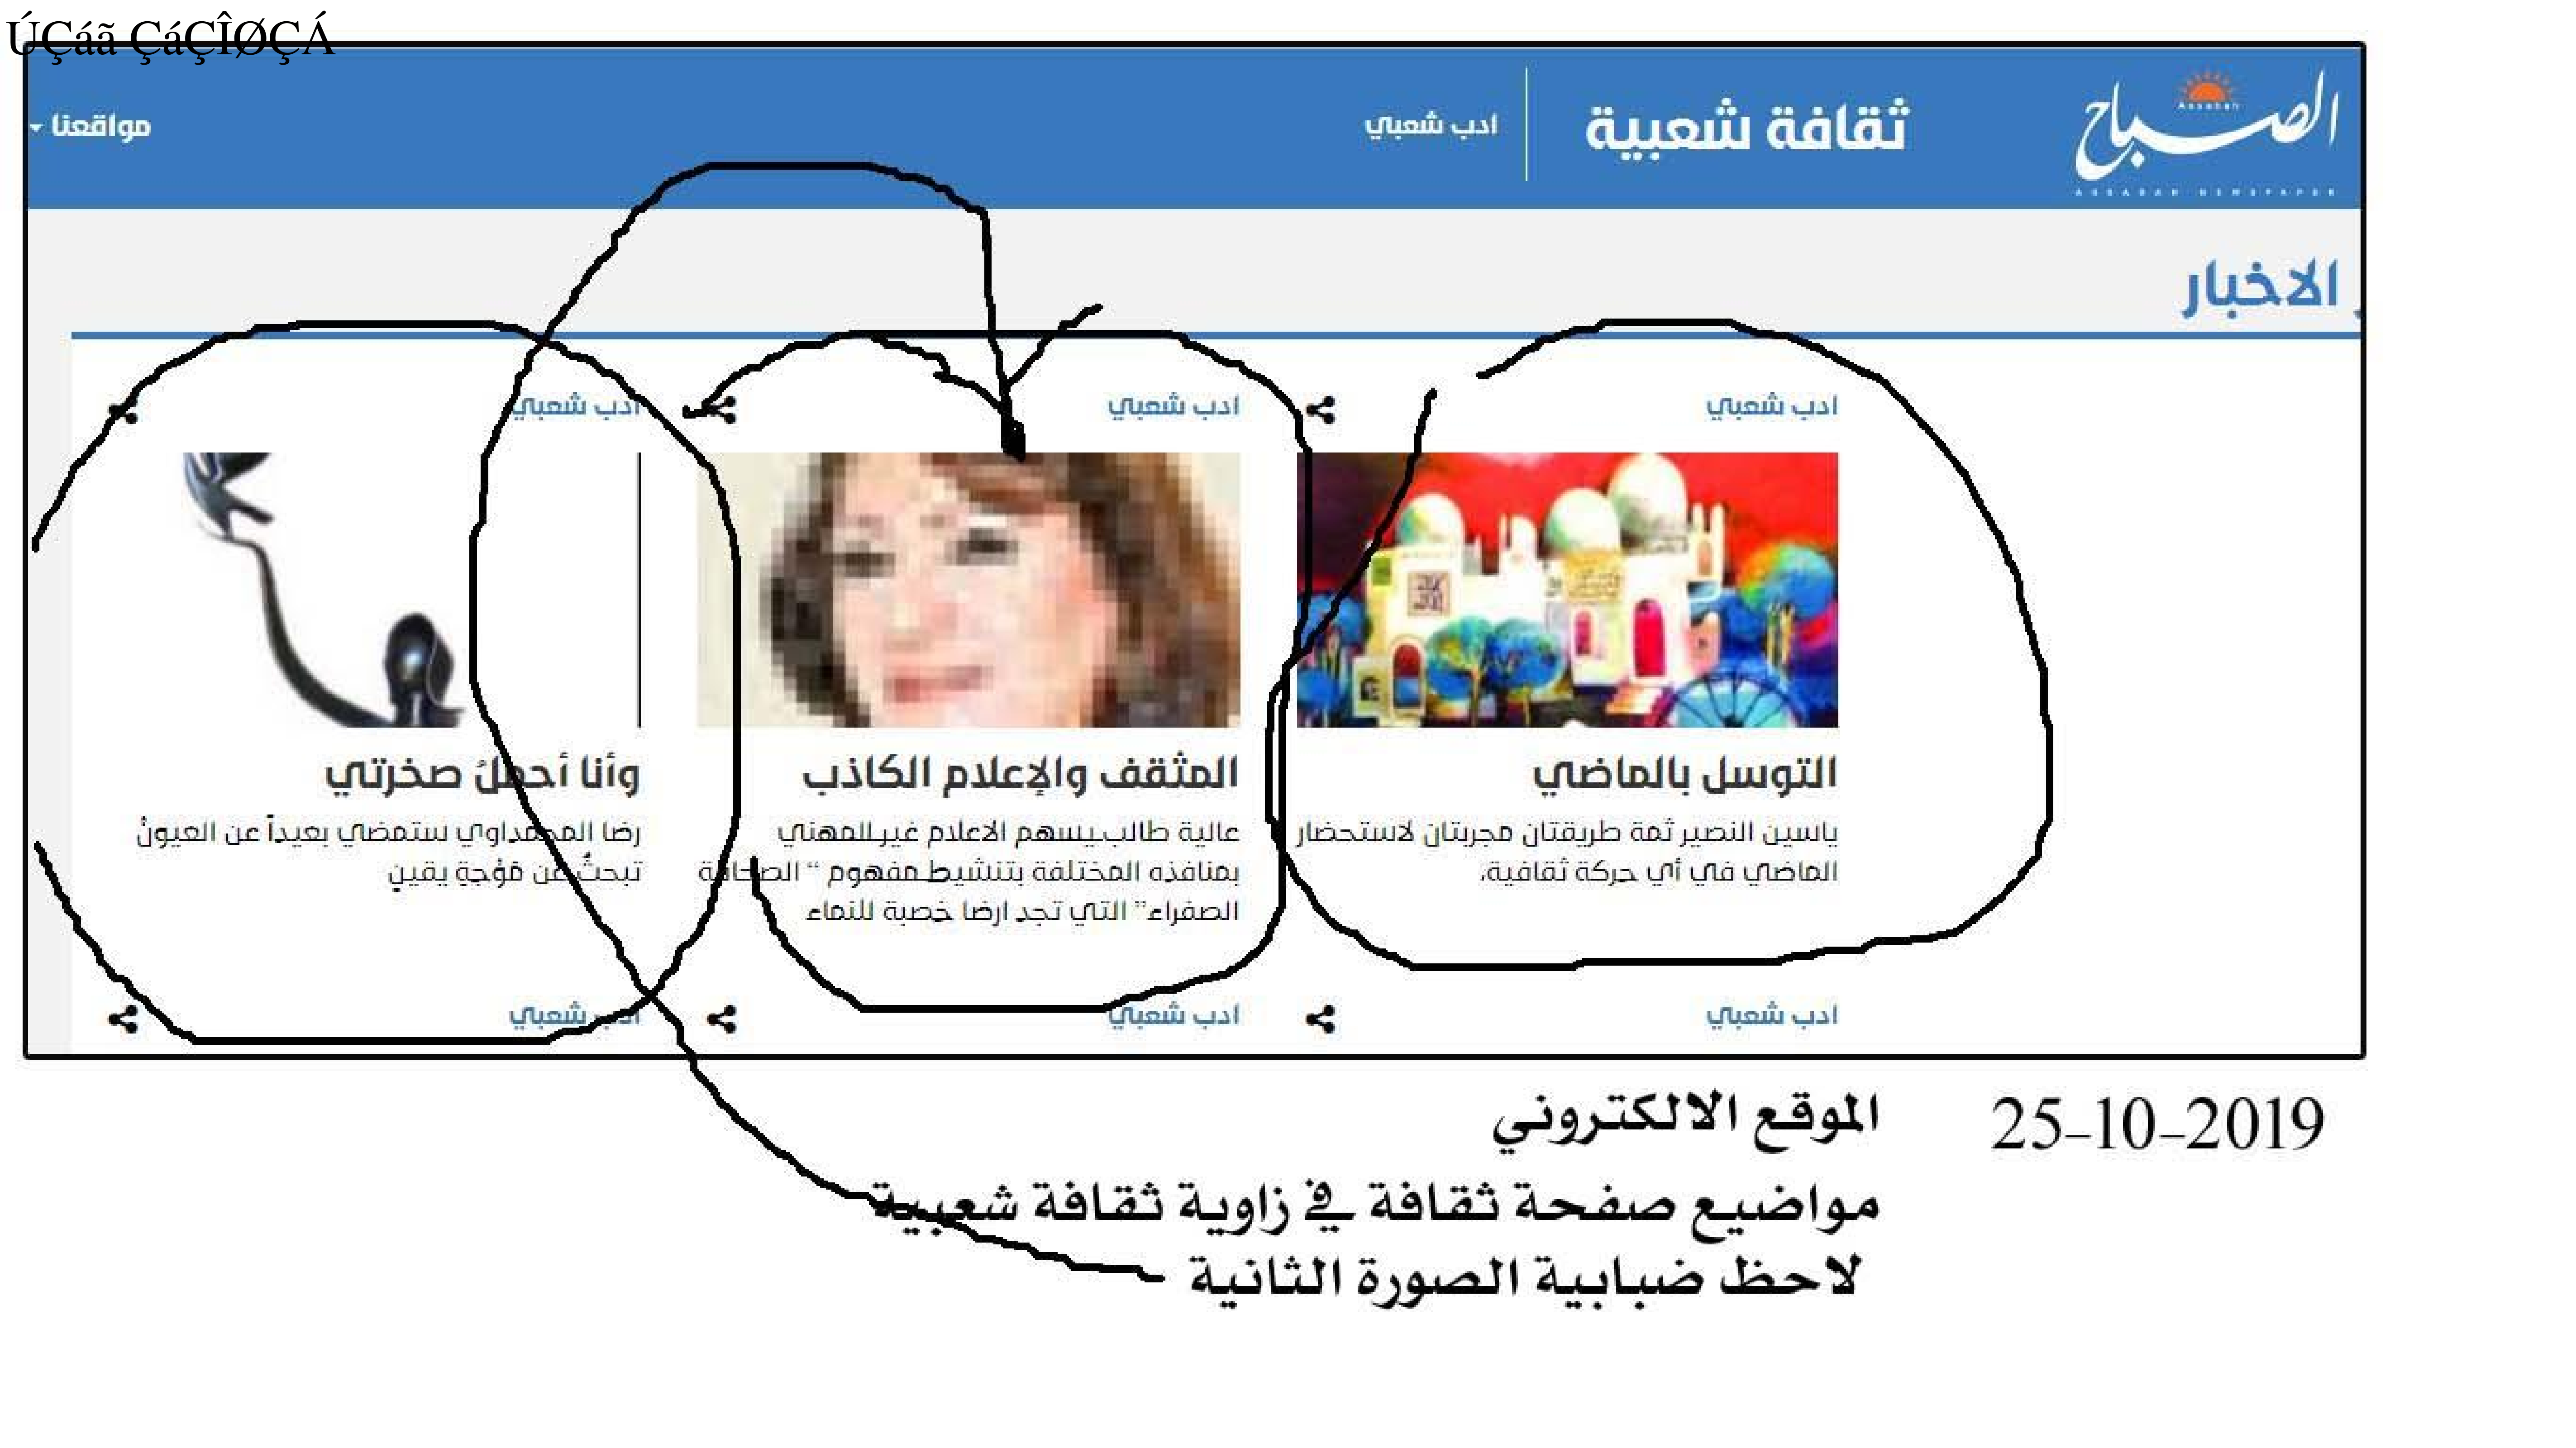 ÚÇáã ÇáÇÎØÇÁ
الصباح
Assabah
ASSABAH NEWSPAPER
ثقافة شعبية
ادب شعبي
مواقعنا
الاخبار
ادب شعبي
التوسل بالماضي
ياسين النصير ثمة طريقتان مجربتان لاستحضار
الماضي في أي حركة ثقافية،
ادب شعبي
المثقف والإعلام الكاذب
عالية طالب يسهم الاعلام غير المهني
بمنافذه المختلفة بتنشيط مفهوم “ الصحافة
الصفراء” التي تجد ارضا خصبة للنماء
ادب شعبي
وأنا أحملُ صخرتي
رضا المحمداوي ستمضي بعيداً عن العيونْ
تبحثُ عن يقينٍ
ادب شعبي
ادب شعبي
ادب شعبي
25-10-2019
الموقع الالكتروني
مواضيع صفحة ثقافة في زاوية ثقافة شعبية
لاحظ ضبابية الصورة الثانية